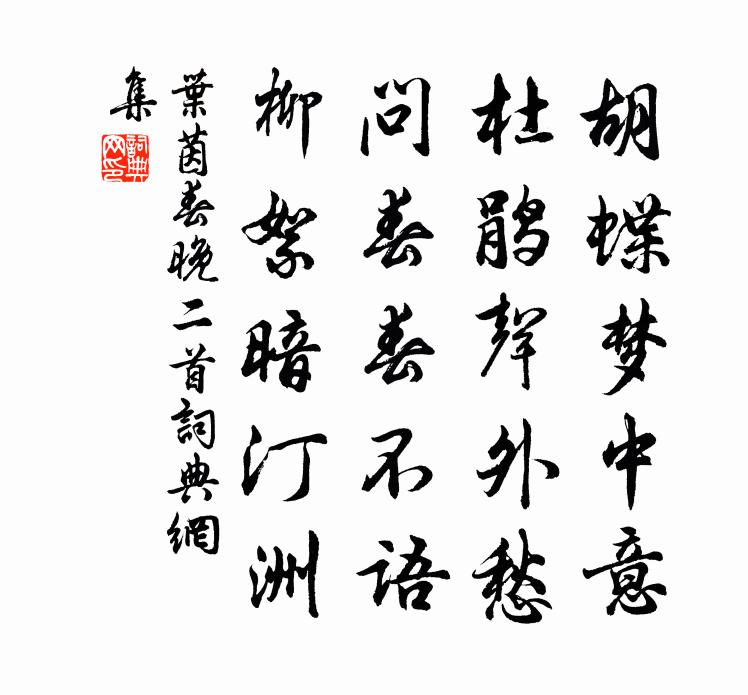 胡蝶梦中意
杜鹃聲外愁
问春春不语
柳絮暗汀洲
葉茵春晚二首詞典網
集
詞典
网印